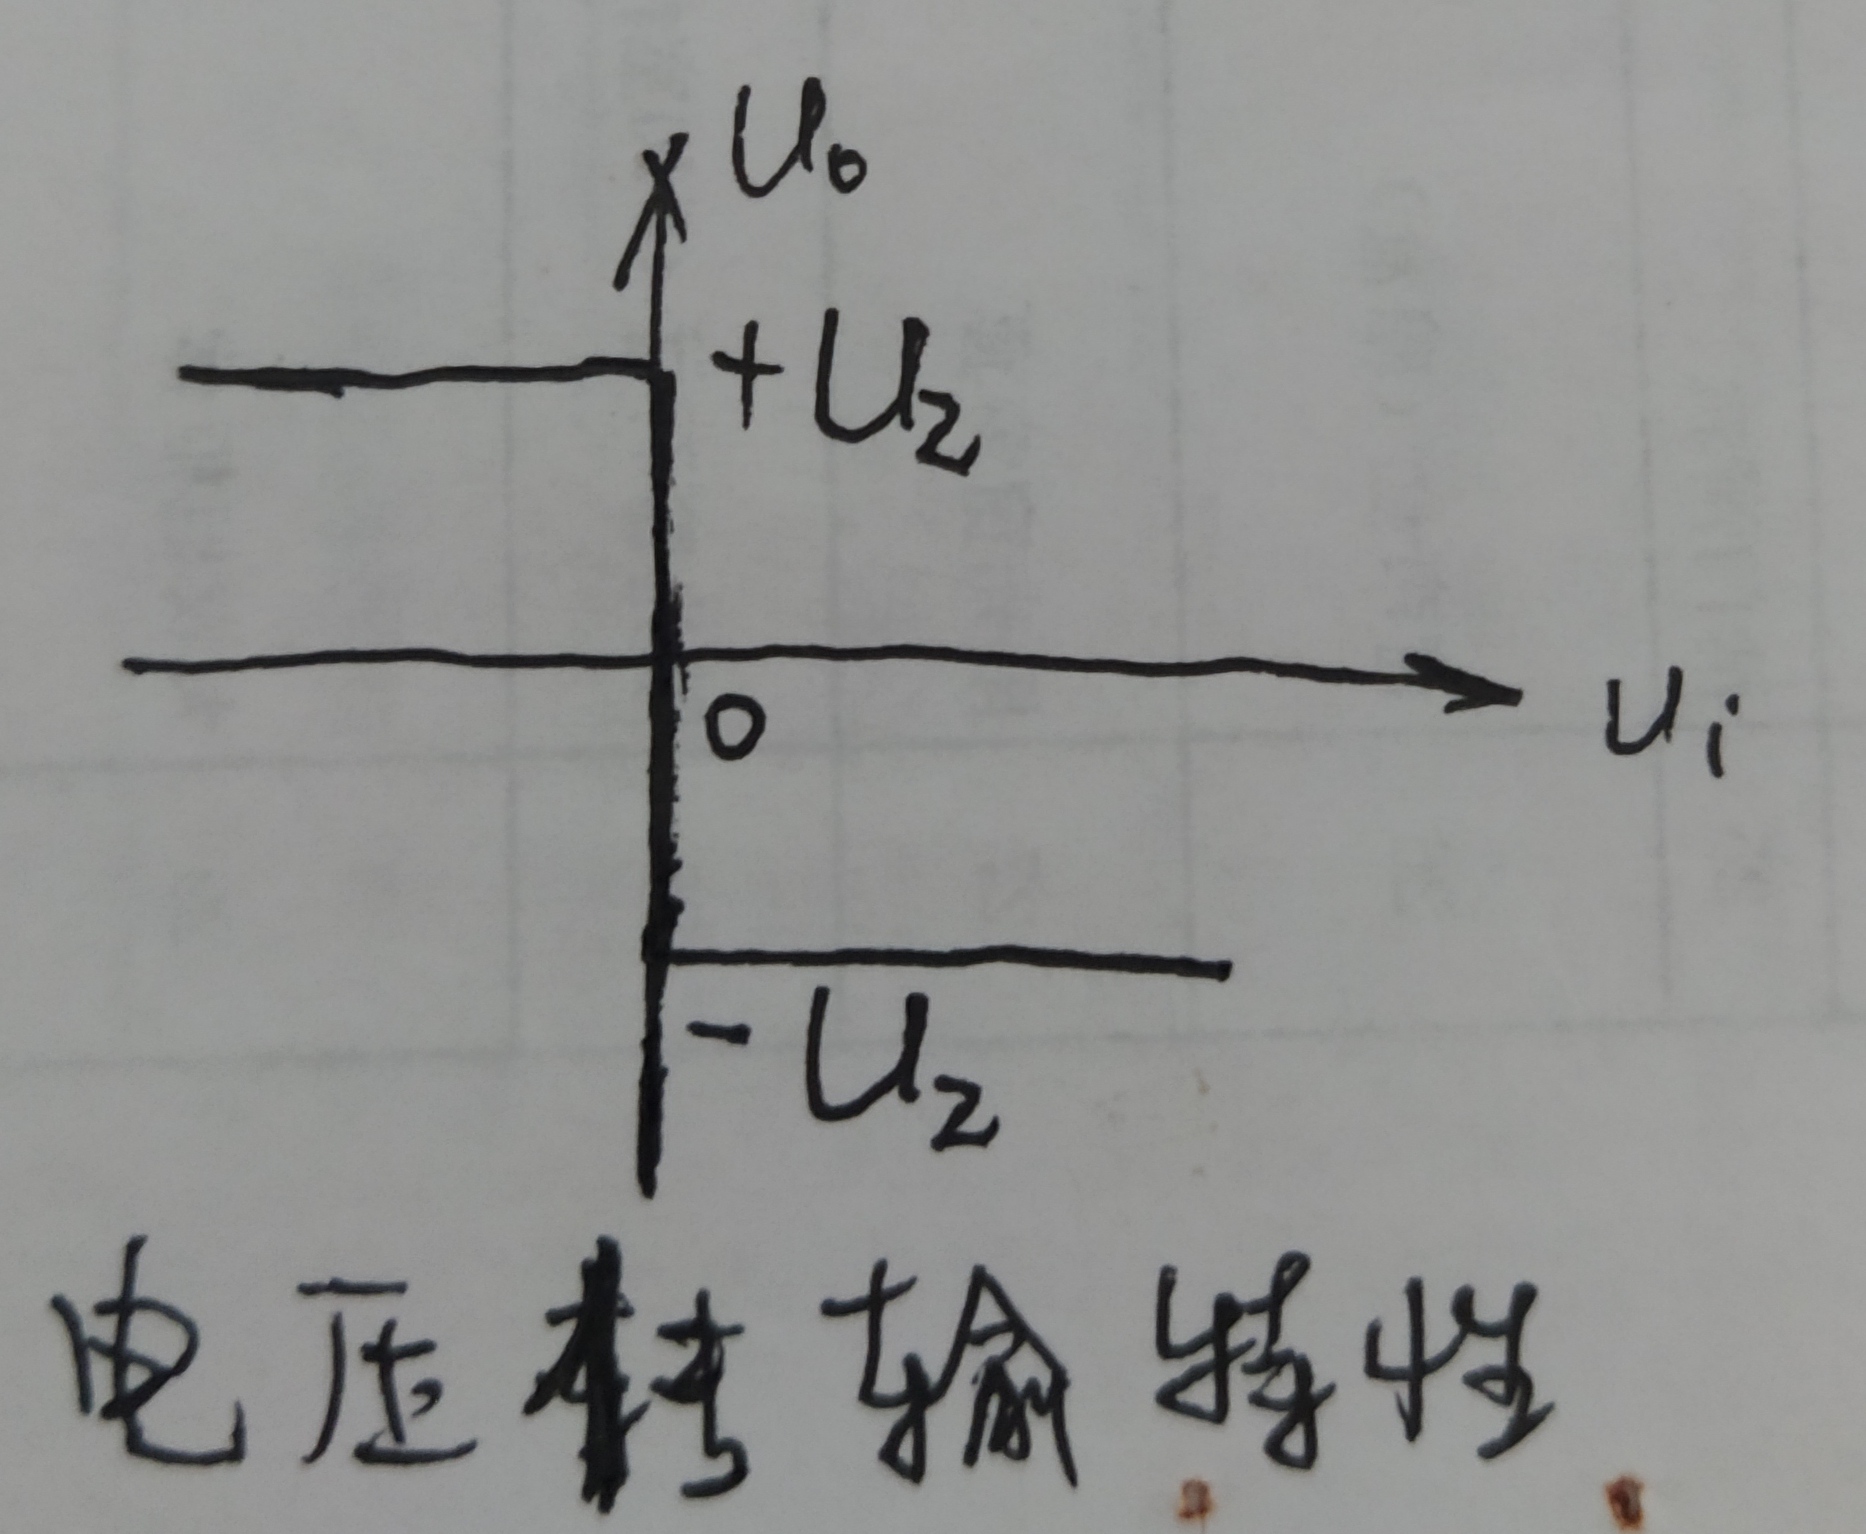 u₀
+U_z
0
u_i
-U_z
电压传输特性